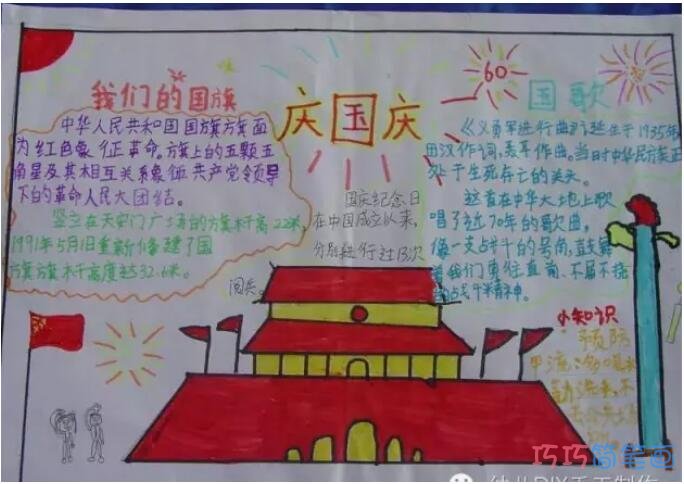 我们的国旗
中华人民共和国国旗旗面
为红色象征革命。旗上的五颗五
角星及其相互关系象征共产党领导
下的革命人民大团结。
竖立在天安门广场的旗杆高22米,
1991年5月1日重新修建了国
旗旗杆高度达32.6米。
庆国庆
国庆纪念日
在中国成立以来,
分别进行过13次
阅兵。
60
国歌
《义勇军进行曲》诞生于1935年
田汉作词,聂耳作曲。当时中华民族正
处于生死存亡的关头。
这首在中华大地上歌
唱了近70年的歌曲,
像一支战斗的号角,鼓舞
着我们勇往直前、不屈不挠
的战斗精神。
小知识
预防
甲流:
巧巧简笔画
幼儿DIY手工制作